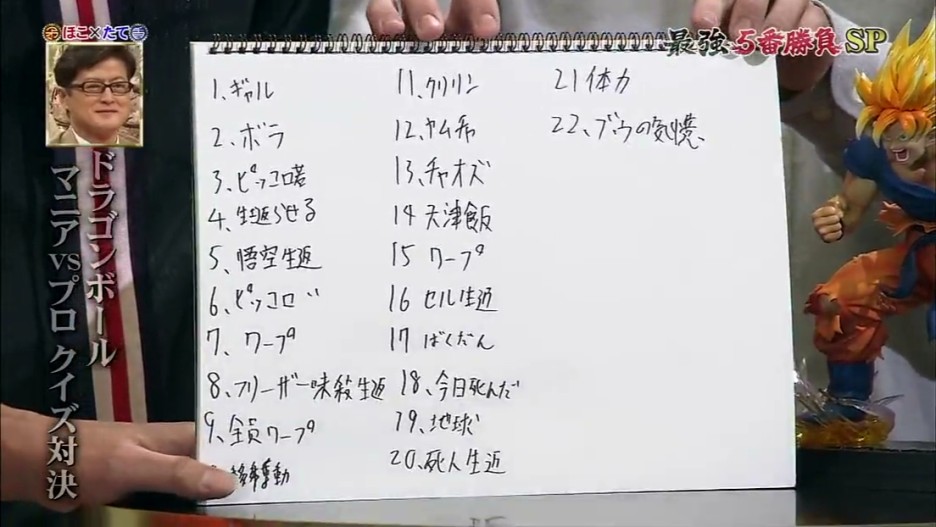 ほこ×たて
最強5番勝負SP
ドラゴンボール
マニアVSプロ クイズ対決
1、ギャル
2、ボラ
3、ピッコロ若
4、生返らせる
5、悟空生返
6、ピッコロ
7、ワープ
8、フリーザー味殺生返
9、全員ワープ
移動
11、クリリン
12、ヤム茶
13、チャオズ
14 天津飯
15 ワープ
16 セル生返
17 ばくだん
18、今日死んだ
19、地球
20、死人生返
21 体力
22、ブウの記憶、